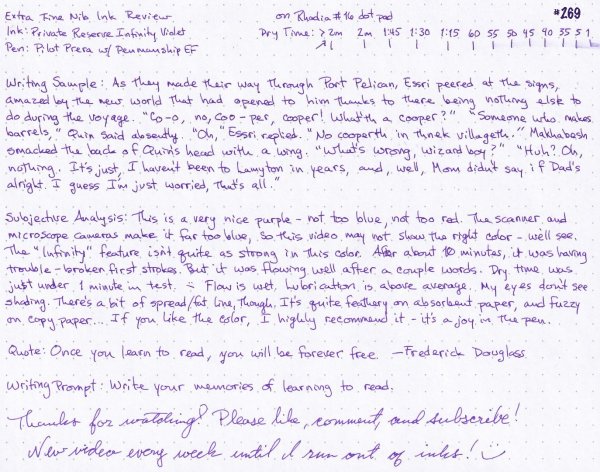 Extra Fine Nib Ink Review on Rhodia #16 dot pad #269
Ink: Private Reserve Infinity Violet Dry Time: >2m 2m 1:45 1:30 1:15 60 55 50 45 40 35 5 1
Pen: Pilot Prera w/ Penmanship EF
Writing Sample: As they made their way through Port Pelican, Essri peered at the signs,
amazed by the new world that had opened to him thanks to there being nothing else to
do during the voyage. "Co-o, no, Coo-per, cooper! What'th a cooper?" "Someone who makes
barrels," Quin said absently. "Oh," Essri replied. "No cooperth in thnek villageth." Makhabesh
smacked the back of Quin's head with a wing. "What's wrong, wizard boy?" "Huh? Oh,
nothing. It's just, I haven't been to Lamyton in years, and, well, Mom didn't say if Dad's
alright. I guess I'm just worried, that's all."
Subjective Analysis: This is a very nice purple - not too blue, not too red. The scanner and
microscope cameras make it far too blue, so this video may not show the right color - we'll see.
The "Infinity" feature isn't quite as strong in this color. After about 10 minutes, it was having
trouble - broken first strokes. But it was flowing well after a couple words. Dry time was
just under 1 minute in test. Flow is wet, lubrication is above average. My eyes don't see
shading. There's a bit of spread/fat line, though. It's quite feathery on absorbent paper, and fuzzy
on copy paper... If you like the color, I highly recommend it - it's a joy in the pen.
Quote: Once you learn to read, you will be forever free. —Frederick Douglass
Writing Prompt: Write your memories of learning to read.
Thanks for watching! Please like, comment, and subscribe!
New video every week until I run out of inks! :)